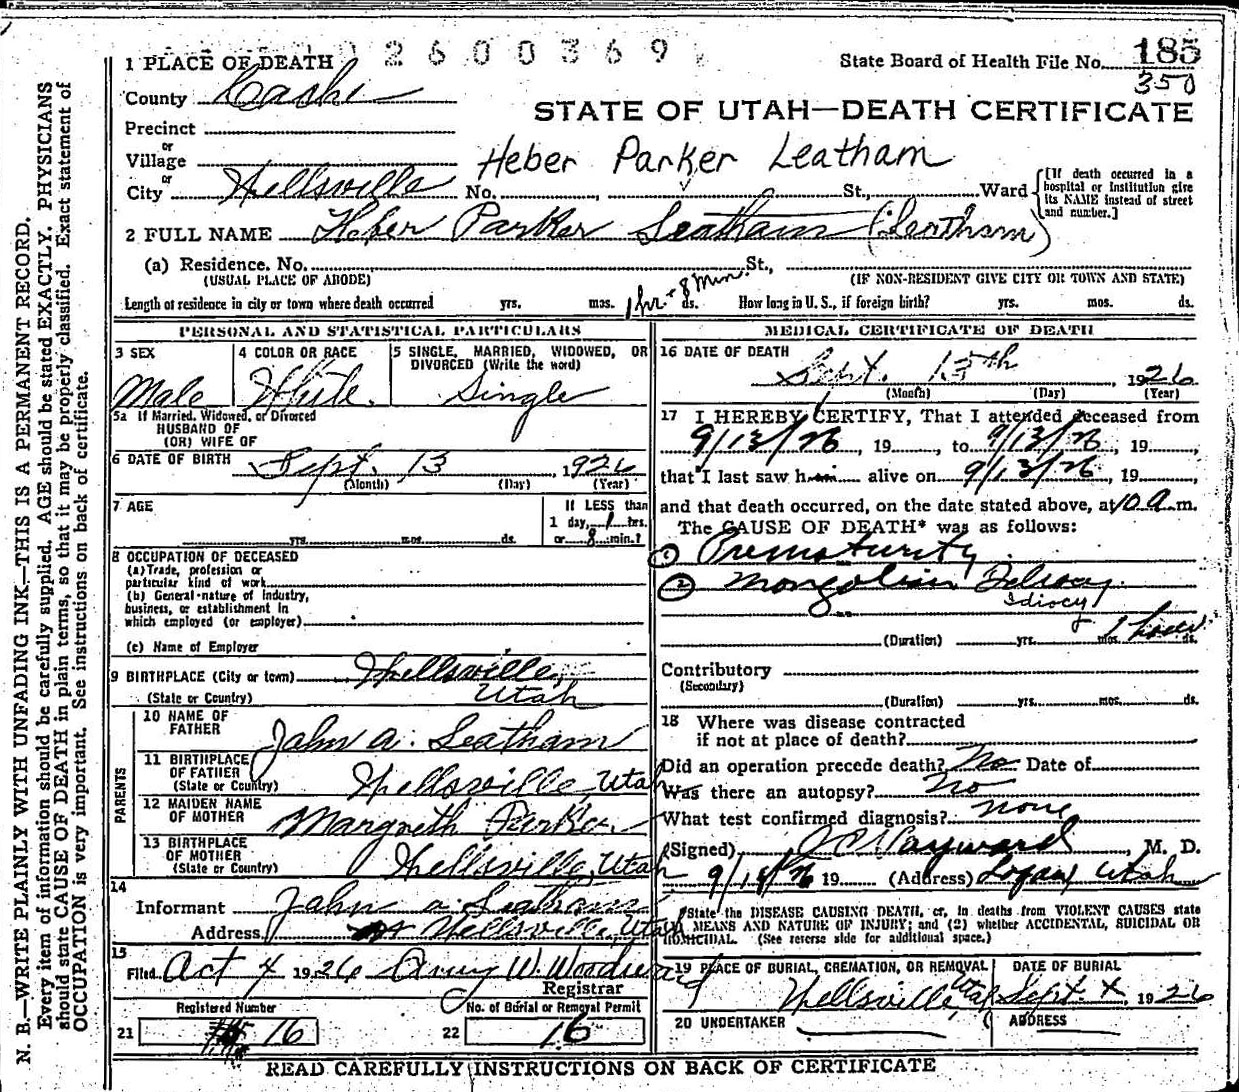 2600369
1 PLACE OF DEATH
State Board of Health File No. 185
350
County Cache
STATE OF UTAH—DEATH CERTIFICATE
Precinct
or
Village
Heber Parker Leatham
or
City Wellsville No. , St., Ward
[If death occurred in a hospital or institution give its NAME instead of street and number.]
2 FULL NAME Heber Parker Leatham (Leatham)
(a) Residence. No. St.,
(USUAL PLACE OF ABODE) (IF NON-RESIDENT GIVE CITY OR TOWN AND STATE)
Length of residence in city or town where death occurred yrs. mos. 1 hr - 8 min. ds. How long in U. S., if foreign birth? yrs. mos. ds.
PERSONAL AND STATISTICAL PARTICULARS
3 SEX
Male
4 COLOR OR RACE
White.
5 SINGLE, MARRIED, WIDOWED, OR
DIVORCED (Write the word)
Single
5a If Married, Widowed, or Divorced
HUSBAND OF
(OR) WIFE OF
6 DATE OF BIRTH Sept. 13, 1926
(Month) (Day) (Year)
7 AGE
yrs. mos. ds.
If LESS than
1 day, 1 hrs.
or 8 min.?
8 OCCUPATION OF DECEASED
(a) Trade, profession or
particular kind of work
(b) General nature of industry,
business, or establishment in
which employed (or employer)
(c) Name of Employer
9 BIRTHPLACE (City or town) Wellsville,
(State or Country) Utah
PARENTS
10 NAME OF
FATHER John A. Leatham
11 BIRTHPLACE
OF FATHER
(State or Country) Wellsville, Utah
12 MAIDEN NAME
OF MOTHER Margreth Parker
13 BIRTHPLACE
OF MOTHER
(State or Country) Wellsville, Utah
14
Informant John A. Leatham
Address Wellsville, Utah
15
Filed Oct 4 1926 W. Woodward
Registrar
Registered Number
21 16
No. of Burial or Removal Permit
22 16
MEDICAL CERTIFICATE OF DEATH
16 DATE OF DEATH
Sept. 13th, 1926
(Month) (Day) (Year)
17 I HEREBY CERTIFY, That I attended deceased from
9/13/26, 19 , to 9/13/26, 19 ,
that I last saw him alive on 9/13/26, 19 ,
and that death occurred, on the date stated above, at 10 a. m.
The CAUSE OF DEATH* was as follows:
① Prematurity
② Mongolian
Idiocy
(Duration) yrs. mos. 1 hour ds.
Contributory
(Secondary)
(Duration) yrs. mos. ds.
18 Where was disease contracted
if not at place of death?
Did an operation precede death? No Date of
Was there an autopsy? No
What test confirmed diagnosis? none
(Signed) Hayward, M. D.
19 (Address) Logan, Utah
*State the DISEASE CAUSING DEATH, or, in deaths from VIOLENT CAUSES state
MEANS AND NATURE OF INJURY; and (2) whether ACCIDENTAL, SUICIDAL OR
HOMICIDAL. (See reverse side for additional space.)
19 PLACE OF BURIAL, CREMATION, OR REMOVAL
Wellsville, Utah
DATE OF BURIAL
Sept. , 1926
20 UNDERTAKER
ADDRESS
READ CAREFULLY INSTRUCTIONS ON BACK OF CERTIFICATE
N. B.—WRITE PLAINLY WITH UNFADING INK—THIS IS A PERMANENT RECORD.
Every item of information should be carefully supplied. AGE should be stated EXACTLY. PHYSICIANS
should state CAUSE OF DEATH in plain terms, so that it may be properly classified. Exact statement of
OCCUPATION is very important. See instructions on back of certificate.